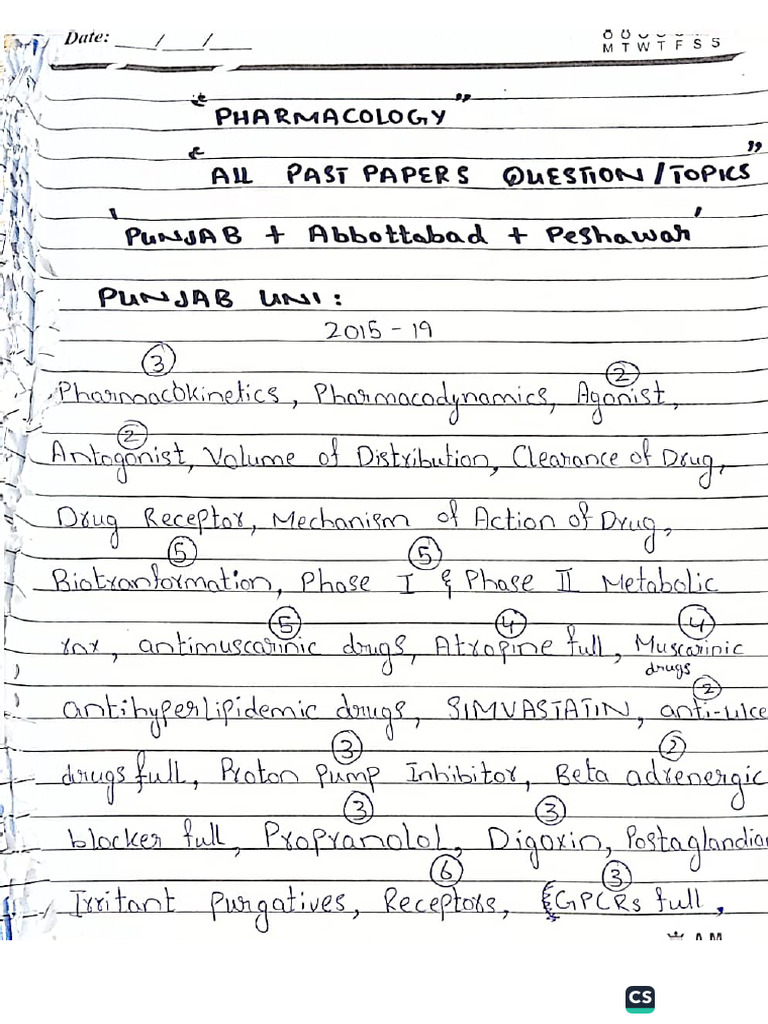 Date: ___/___/___
M T W T F S S
" PHARMACOLOGY "
" All PAST PAPERS QUESTION / TOPICS "
' PUNJAB + Abbottabad + Peshawar '
PUNJAB UNI :
2015 - 19
3
2
Pharmacokinetics, Pharmacodynamics, Agonist,
2
Antogonist, Volume of Distribution, Clearance of Drug,
Drug Receptor, Mechanism of Action of Drug,
5 5
Biotranformation, Phase I & Phase II Metabolic
5 4 4
rxx, antimuscarinic drugs, Atropine full, Muscarinic
drugs
2
antihyperlipidemic drugs, SIMVASTATIN, anti-ulce
3 2
drugs full, Proton Pump Inhibitor, Beta adrenergic
3 3
blocker full, Propranolol, Digoxin, Postaglandin
6 3
Irritant purgatives, Receptors, GPCRs full,
CS